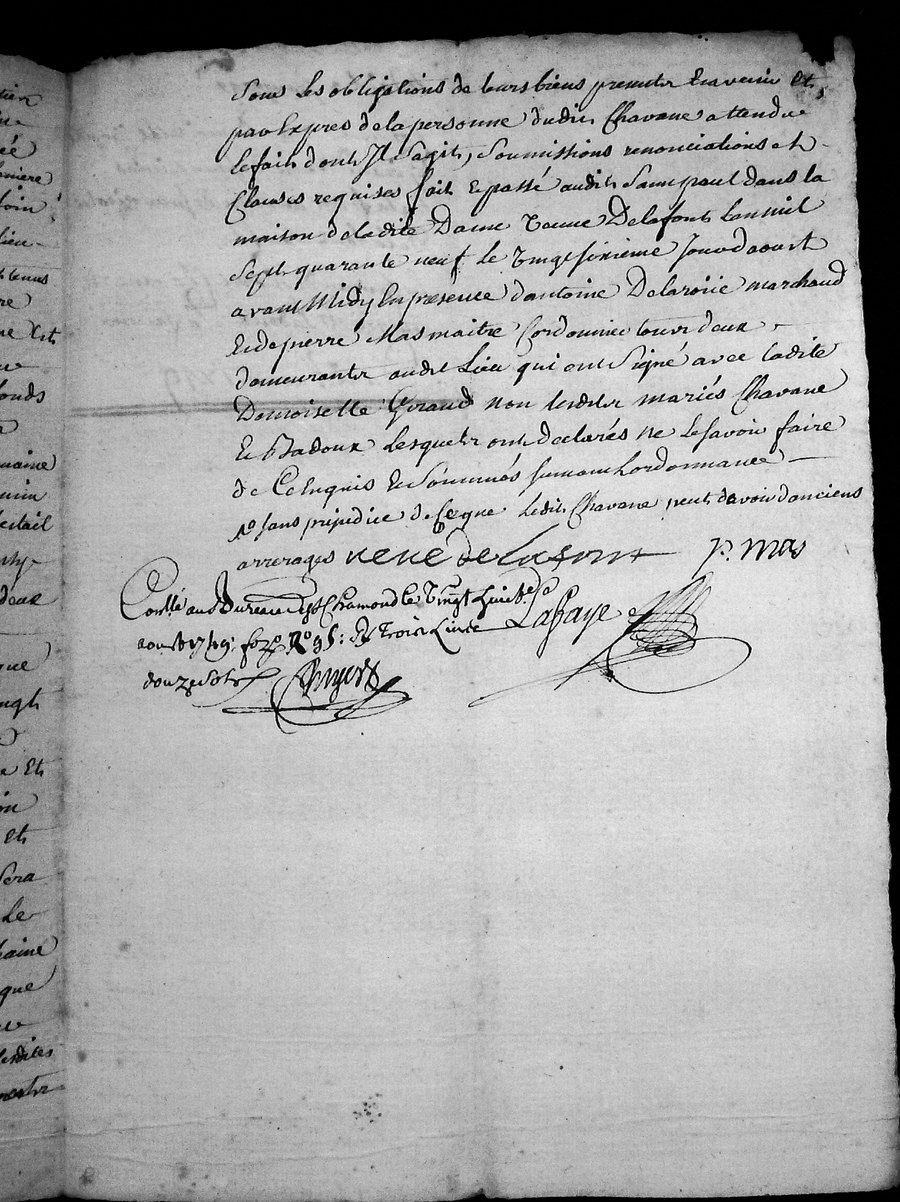 tier
ée
oniere
soin
lieu
tenus
re
ne Est
onds
a
maine
umin
detail
deux
que
ingt
e Et
on
et
sera
Le
haine
que
lesdites
Sous les obligations de leurs biens presents Eta venir et
par Expres de la personne dudit Chavane attendu
le fait dont Jl s'agit, Soumissions renonciations et
Clauses requises fait & passé audit Saint paul dans la
maison de ladite Dame Veuve Delafont Lan mil
Sept quarante neuf le vingt sixieme Jour daoust
avant Midy En presence dantoine Delaroüe marchand
Et de pierre Mas maitre Cordonnier tous deux
demeurants audit Lieu qui ont Signé avec ladite
Demoiselle Giraud non lesdits mariés Chavane
Et Badoux Lesquels ont declarés ne le savoir faire
de Ce Enquis Et Sommés suivant Lordonnance
sans prejudice de Ceque ledit Chavane peut devoir danciens
arrerages veuve de Lafont p. mas
Con.lé au Bureau de St Chamond le Vingt huit
aoust 1749 fo N.o 95: R Trois Livre Lafaye
douze sols